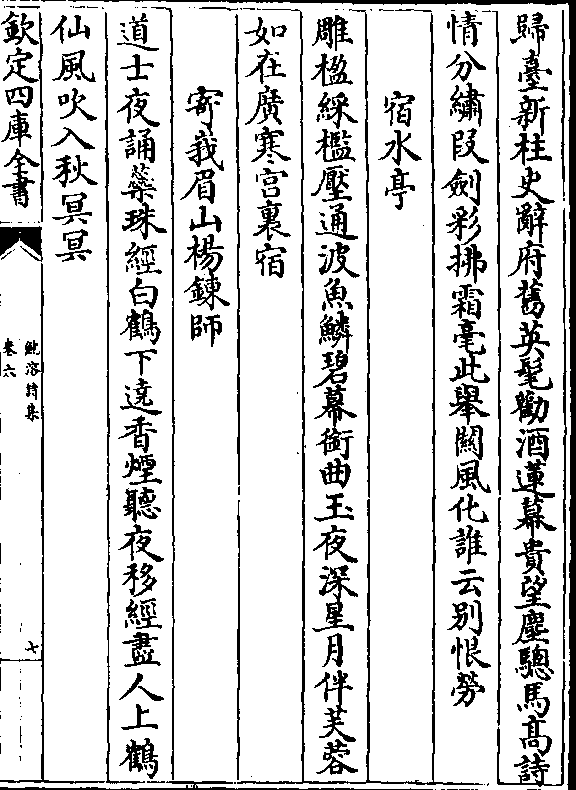 歸臺新柱史辭府舊英髦勸酒蓮幕貴望塵驄馬高詩
情分繡段劍彩拂霜毫此舉闗風化誰云别恨勞
宿水亭
雕楹綵檻壓通波魚鱗碧幕銜曲玉夜深星月伴芙蓉
如在廣寒宫裏宿
寄峩眉山楊鍊師
道士夜誦蘂珠經白鶴下遶香煙聽夜移經盡人上鶴
仙風吹入秋冥冥
欽定四庫全書
卷六
七